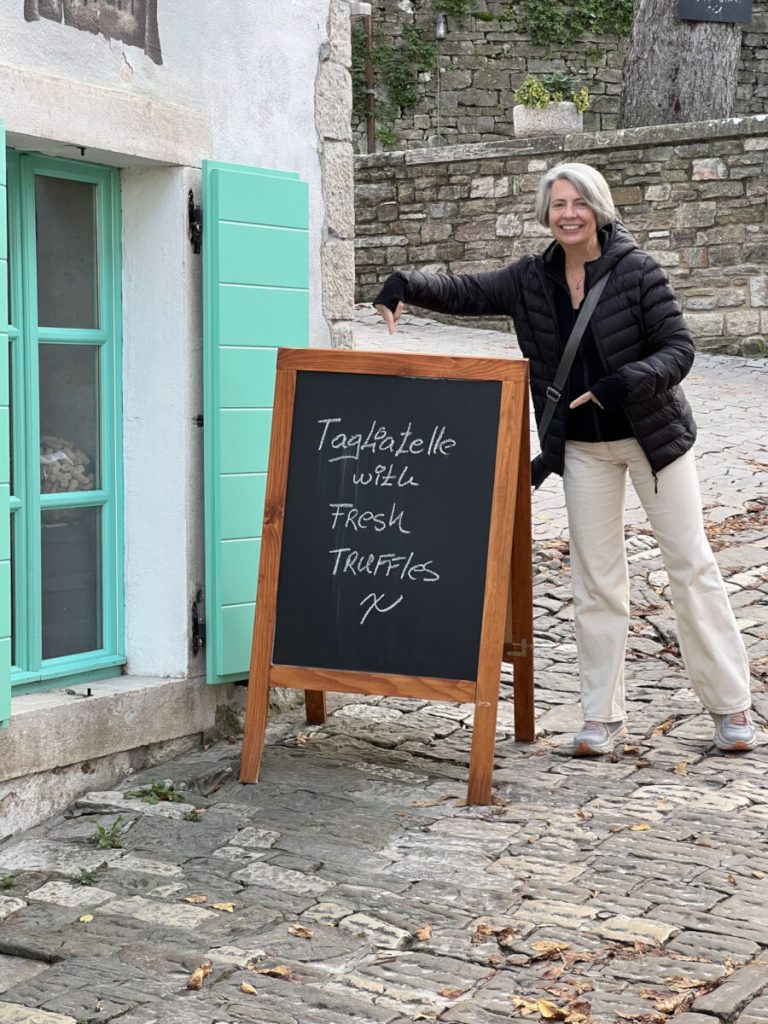 Tagliatelle
with
Fresh
Truffles